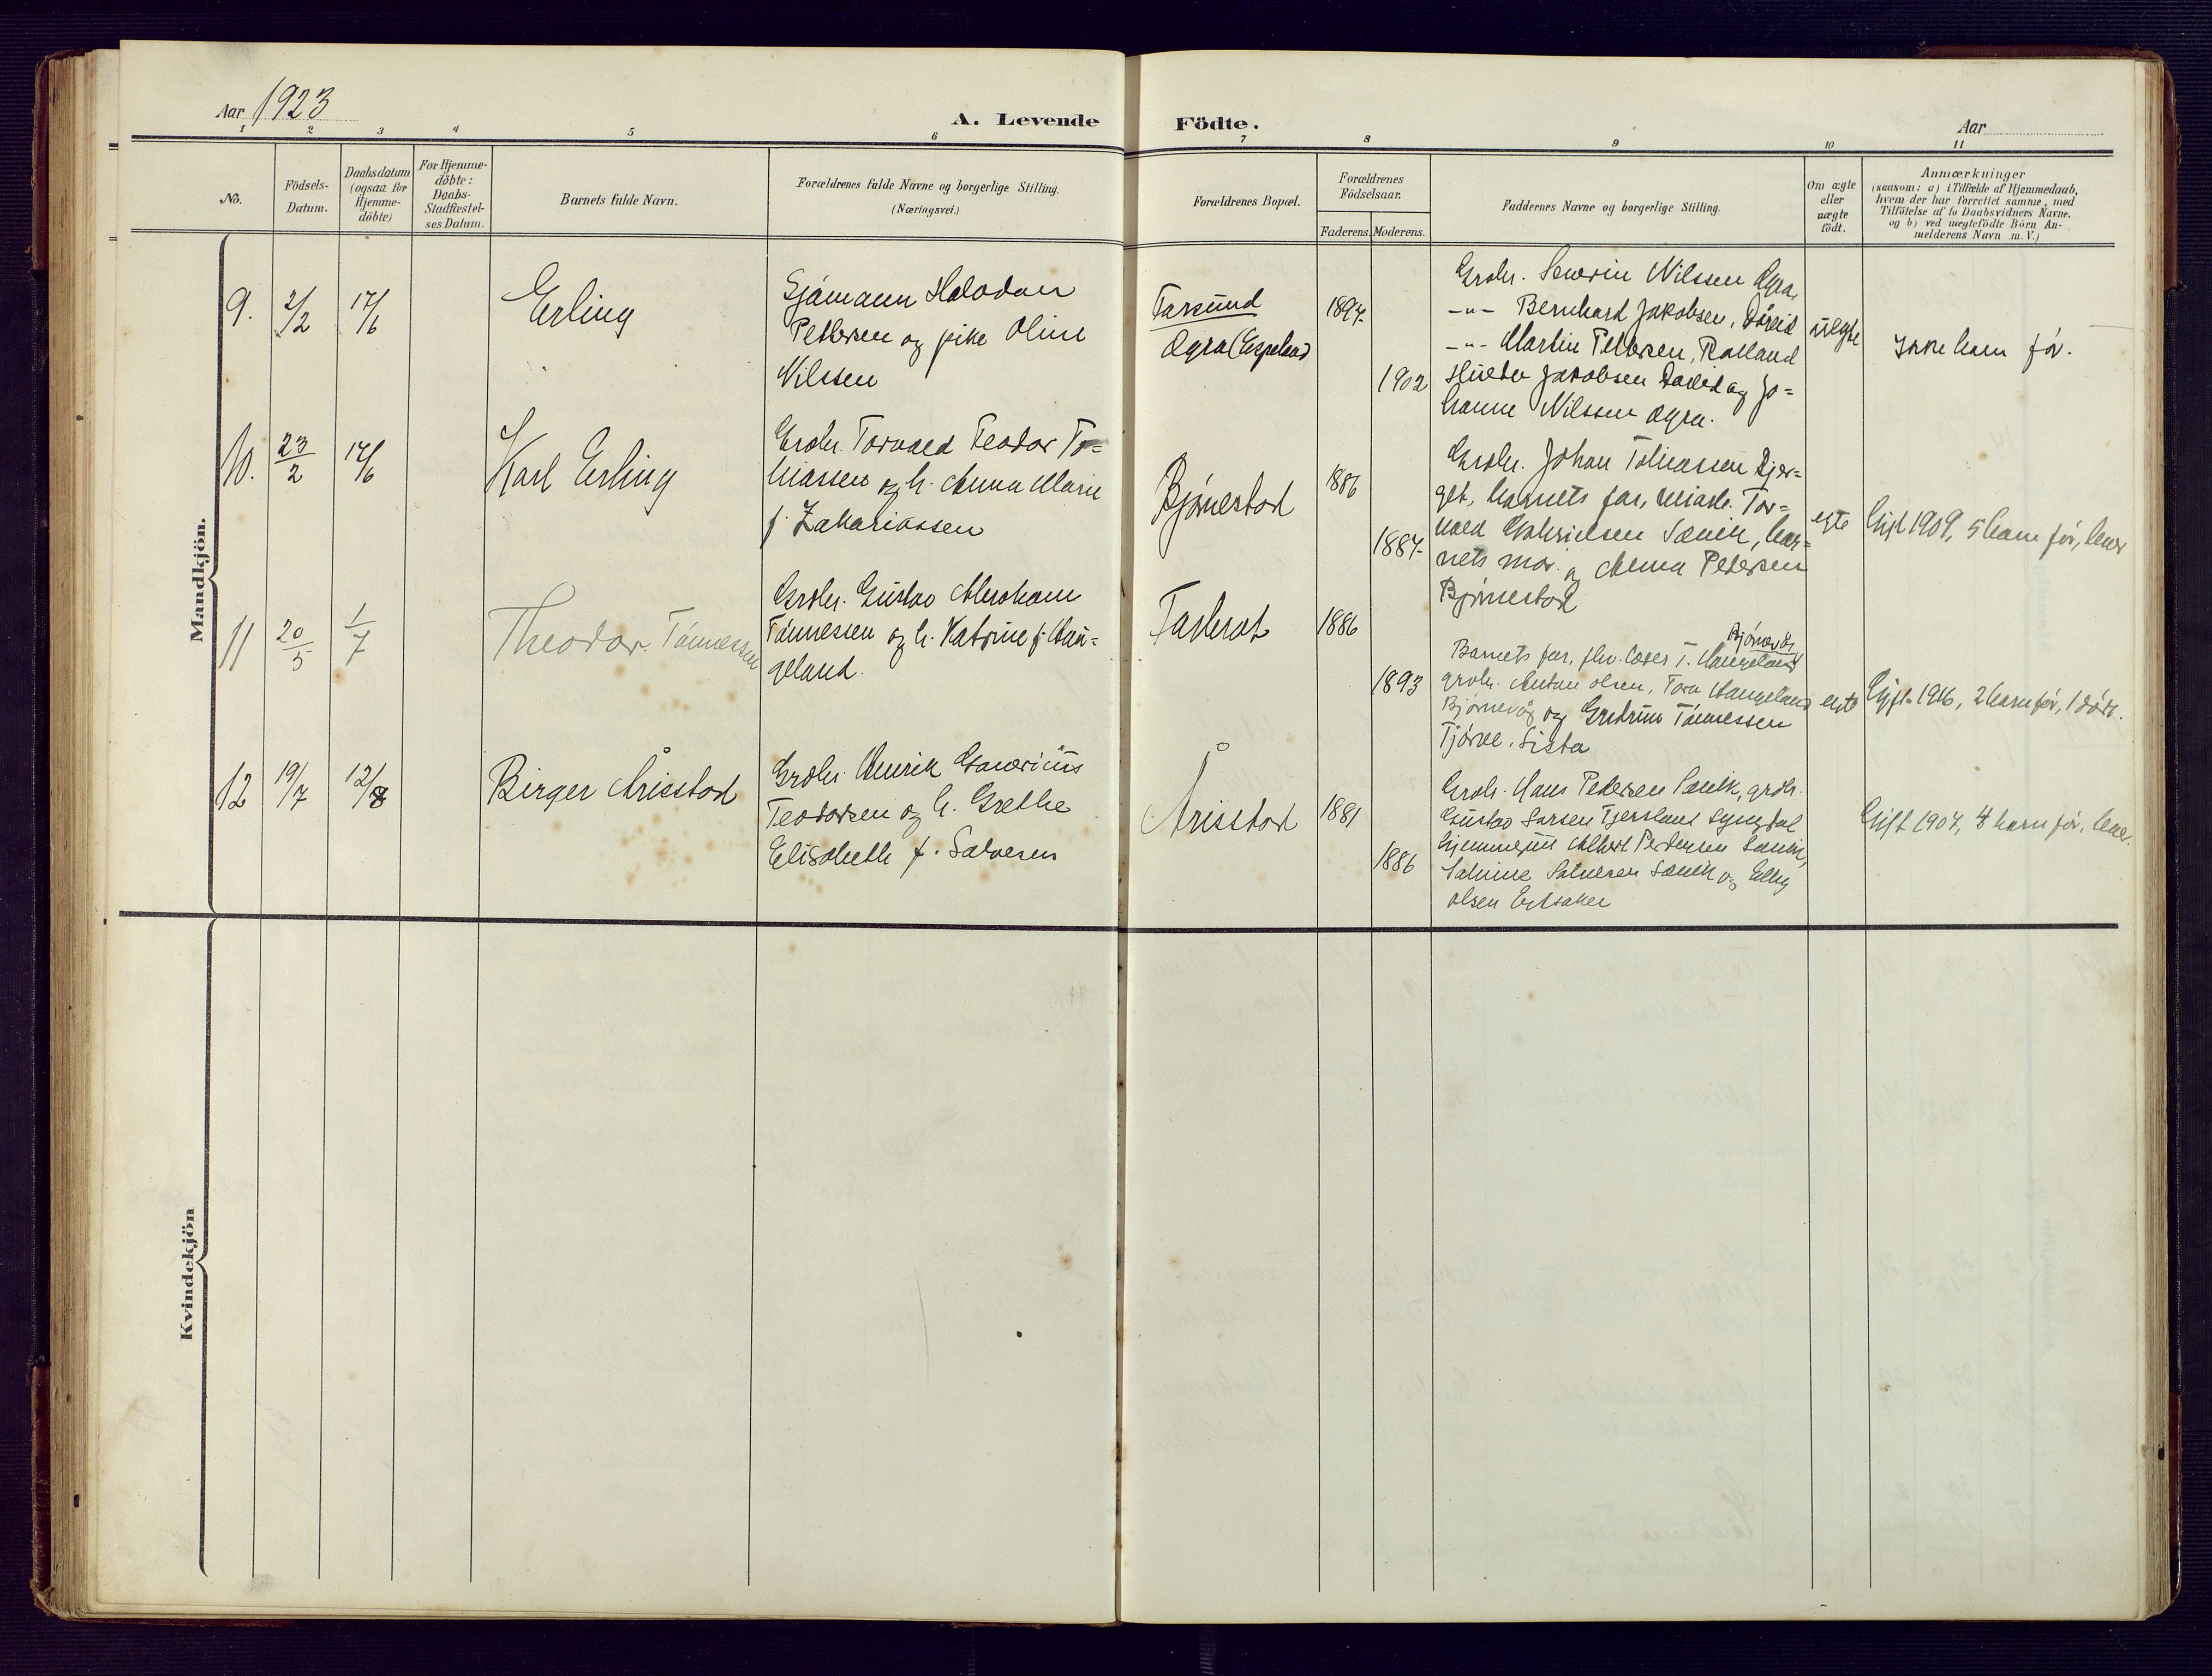 Aar 1923
A. Levende Födte.
Aar
1 2 3 4 5 6 7 8 9 10 11
No.
Födsels-
Datum.
Daabsdatum
(ogsaa for
Hjemme-
döbte)
For Hjemme-
döbte:
Daabs-
Stadfæstel-
ses Datum.
Barnets fulde Navn.
Forældrenes fulde Navne og borgerlige Stilling.
(Næringsvei.)
Forældrenes Bopæl.
Forældrenes
Födselsaar.
Faderens. Moderens.
Faddernes Navne og borgerlige Stilling.
Om ægte
eller
uægte
födt.
Anmærkninger
(saasom: a) i Tilfælde af Hjemmedaab,
hvem der har forrettet samme, med
Tilföielse af to Daabsvidners Navne.
og b) ved uægtefödte Börn An-
melderens Navn m. V.)
Mandkjön.
9. 2/2 17/6
Erling
Sjømann
Petersen og pike Oline
Nilssen
Farsund
Øgra (Espeland)
1897
1902
Grdbr. Severin Nilssen Øgra,
-"- Bernhard Jakobsen,
-"- Martin Petersen,
Jakobsen og Jo=
hanne Nilssen Øgra.
uegte
Ikke barn før.
10. 23/2 17/6
Karl Erling
Grdbr. Torvald Teodor To=
biassen og h. Anna Marie
f. Zakariassen
Bjørnestad
1886
1887
Grdbr. Johan Tobiassen
barnets far, Tor=
vald Gabrielsen Sævik, bar=
nets mor. og Anna Petersen
Bjørnestad
egte
Gift 1909, 5 barn før, lever
11 20/5 1/7
Theodor Tønnessen
Grdbr. Gustav Abraham
Tønnessen og h. Katrine f. Hau=
geland.
1886
1893
Bjørnevåg
Barnets far, T. Haugeland
grdbr. Anton Olsen, Tora Haugeland
Bjørnevåg og Tønnessen
Tjørve, Lista
egte
Gift 1916, 2 barn før, 1 død.
12 19/7 12/8
Birger Årisstad
Grdbr. Henrik
Teodorsen og h. Grethe
Elisabeth f. Salvesen
Årisstad
1881
1886
Grdbr. Hans Petersen Sævik, grdbr.
Gustav Larsen Tjersland Lyngdal
Albert Pedersen Sævik,
Salvesen Sævik og Elly
Olsen
Gift 1907, 4 barn før, lever.
Kvindekjön